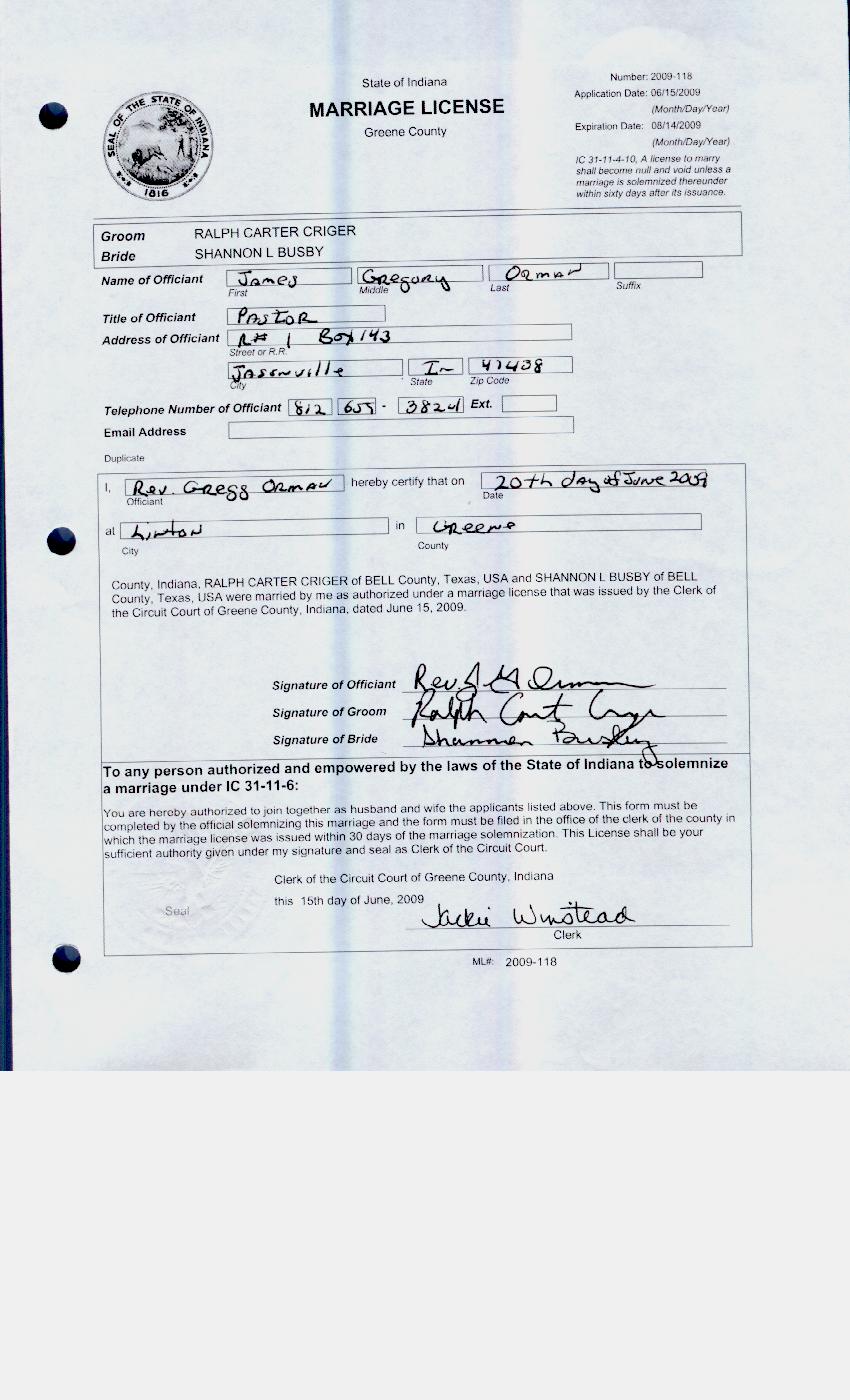 State of Indiana
MARRIAGE LICENSE
Greene County
Number: 2009-118
Application Date: 06/15/2009
(Month/Day/Year)
Expiration Date: 08/14/2009
(Month/Day/Year)
IC 31-11-4-10, A license to marry
shall become null and void unless a
marriage is solemnized thereunder
within sixty days after its issuance.
SEAL OF THE STATE OF INDIANA
1816
Groom RALPH CARTER CRIGER
Bride SHANNON L BUSBY
Name of Officiant James Gregory Orman
First Middle Last Suffix
Title of Officiant PASTOR
Address of Officiant R# 1 Box 143
Street or R.R.
Jasonville In 47438
City State Zip Code
Telephone Number of Officiant 812 659 - 3824 Ext.
Email Address
Duplicate
I, Rev. Gregg Orman hereby certify that on 20th day of June 2009
Officiant Date
at Linton in Greene
City County
County, Indiana, RALPH CARTER CRIGER of BELL County, Texas, USA and SHANNON L BUSBY of BELL
County, Texas, USA were married by me as authorized under a marriage license that was issued by the Clerk of
the Circuit Court of Greene County, Indiana, dated June 15, 2009.
Signature of Officiant Rev. J G Orman
Signature of Groom Ralph Cart Criger
Signature of Bride Shannon Busby
To any person authorized and empowered by the laws of the State of Indiana to solemnize
a marriage under IC 31-11-6:
You are hereby authorized to join together as husband and wife the applicants listed above. This form must be
completed by the official solemnizing this marriage and the form must be filed in the office of the clerk of the county in
which the marriage license was issued within 30 days of the marriage solemnization. This License shall be your
sufficient authority given under my signature and seal as Clerk of the Circuit Court.
Clerk of the Circuit Court of Greene County, Indiana
this 15th day of June, 2009
Seal
Jackie Winstead
Clerk
ML#: 2009-118